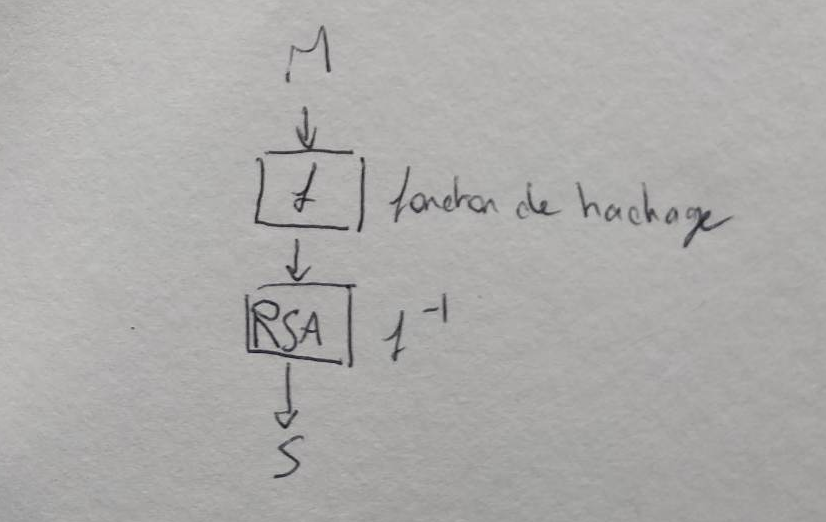 M
f fonction de hachage
RSA f⁻¹
S